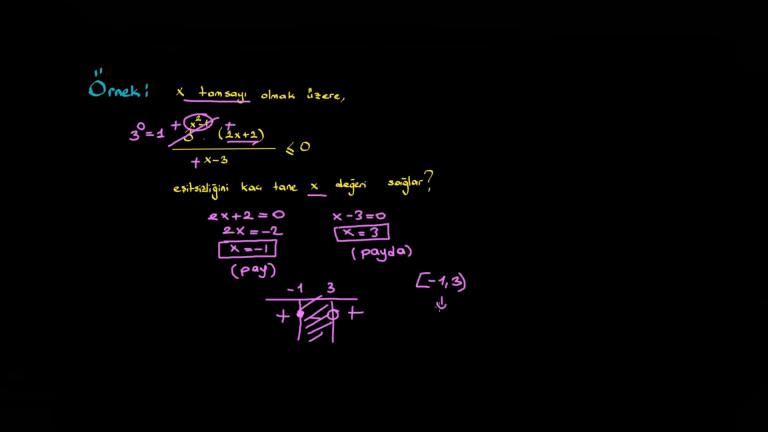 Örnek:
x tamsayı olmak üzere,
3⁰=1
3^(x²-1) · (2x+2)
+ +
≤ 0
+ x-3
eşitsizliğini kaç tane x değeri sağlar?
2x+2=0 x-3=0
2x=-2 x=3
x=-1 (payda)
(pay)
-1 3 [-1,3)
+ - +